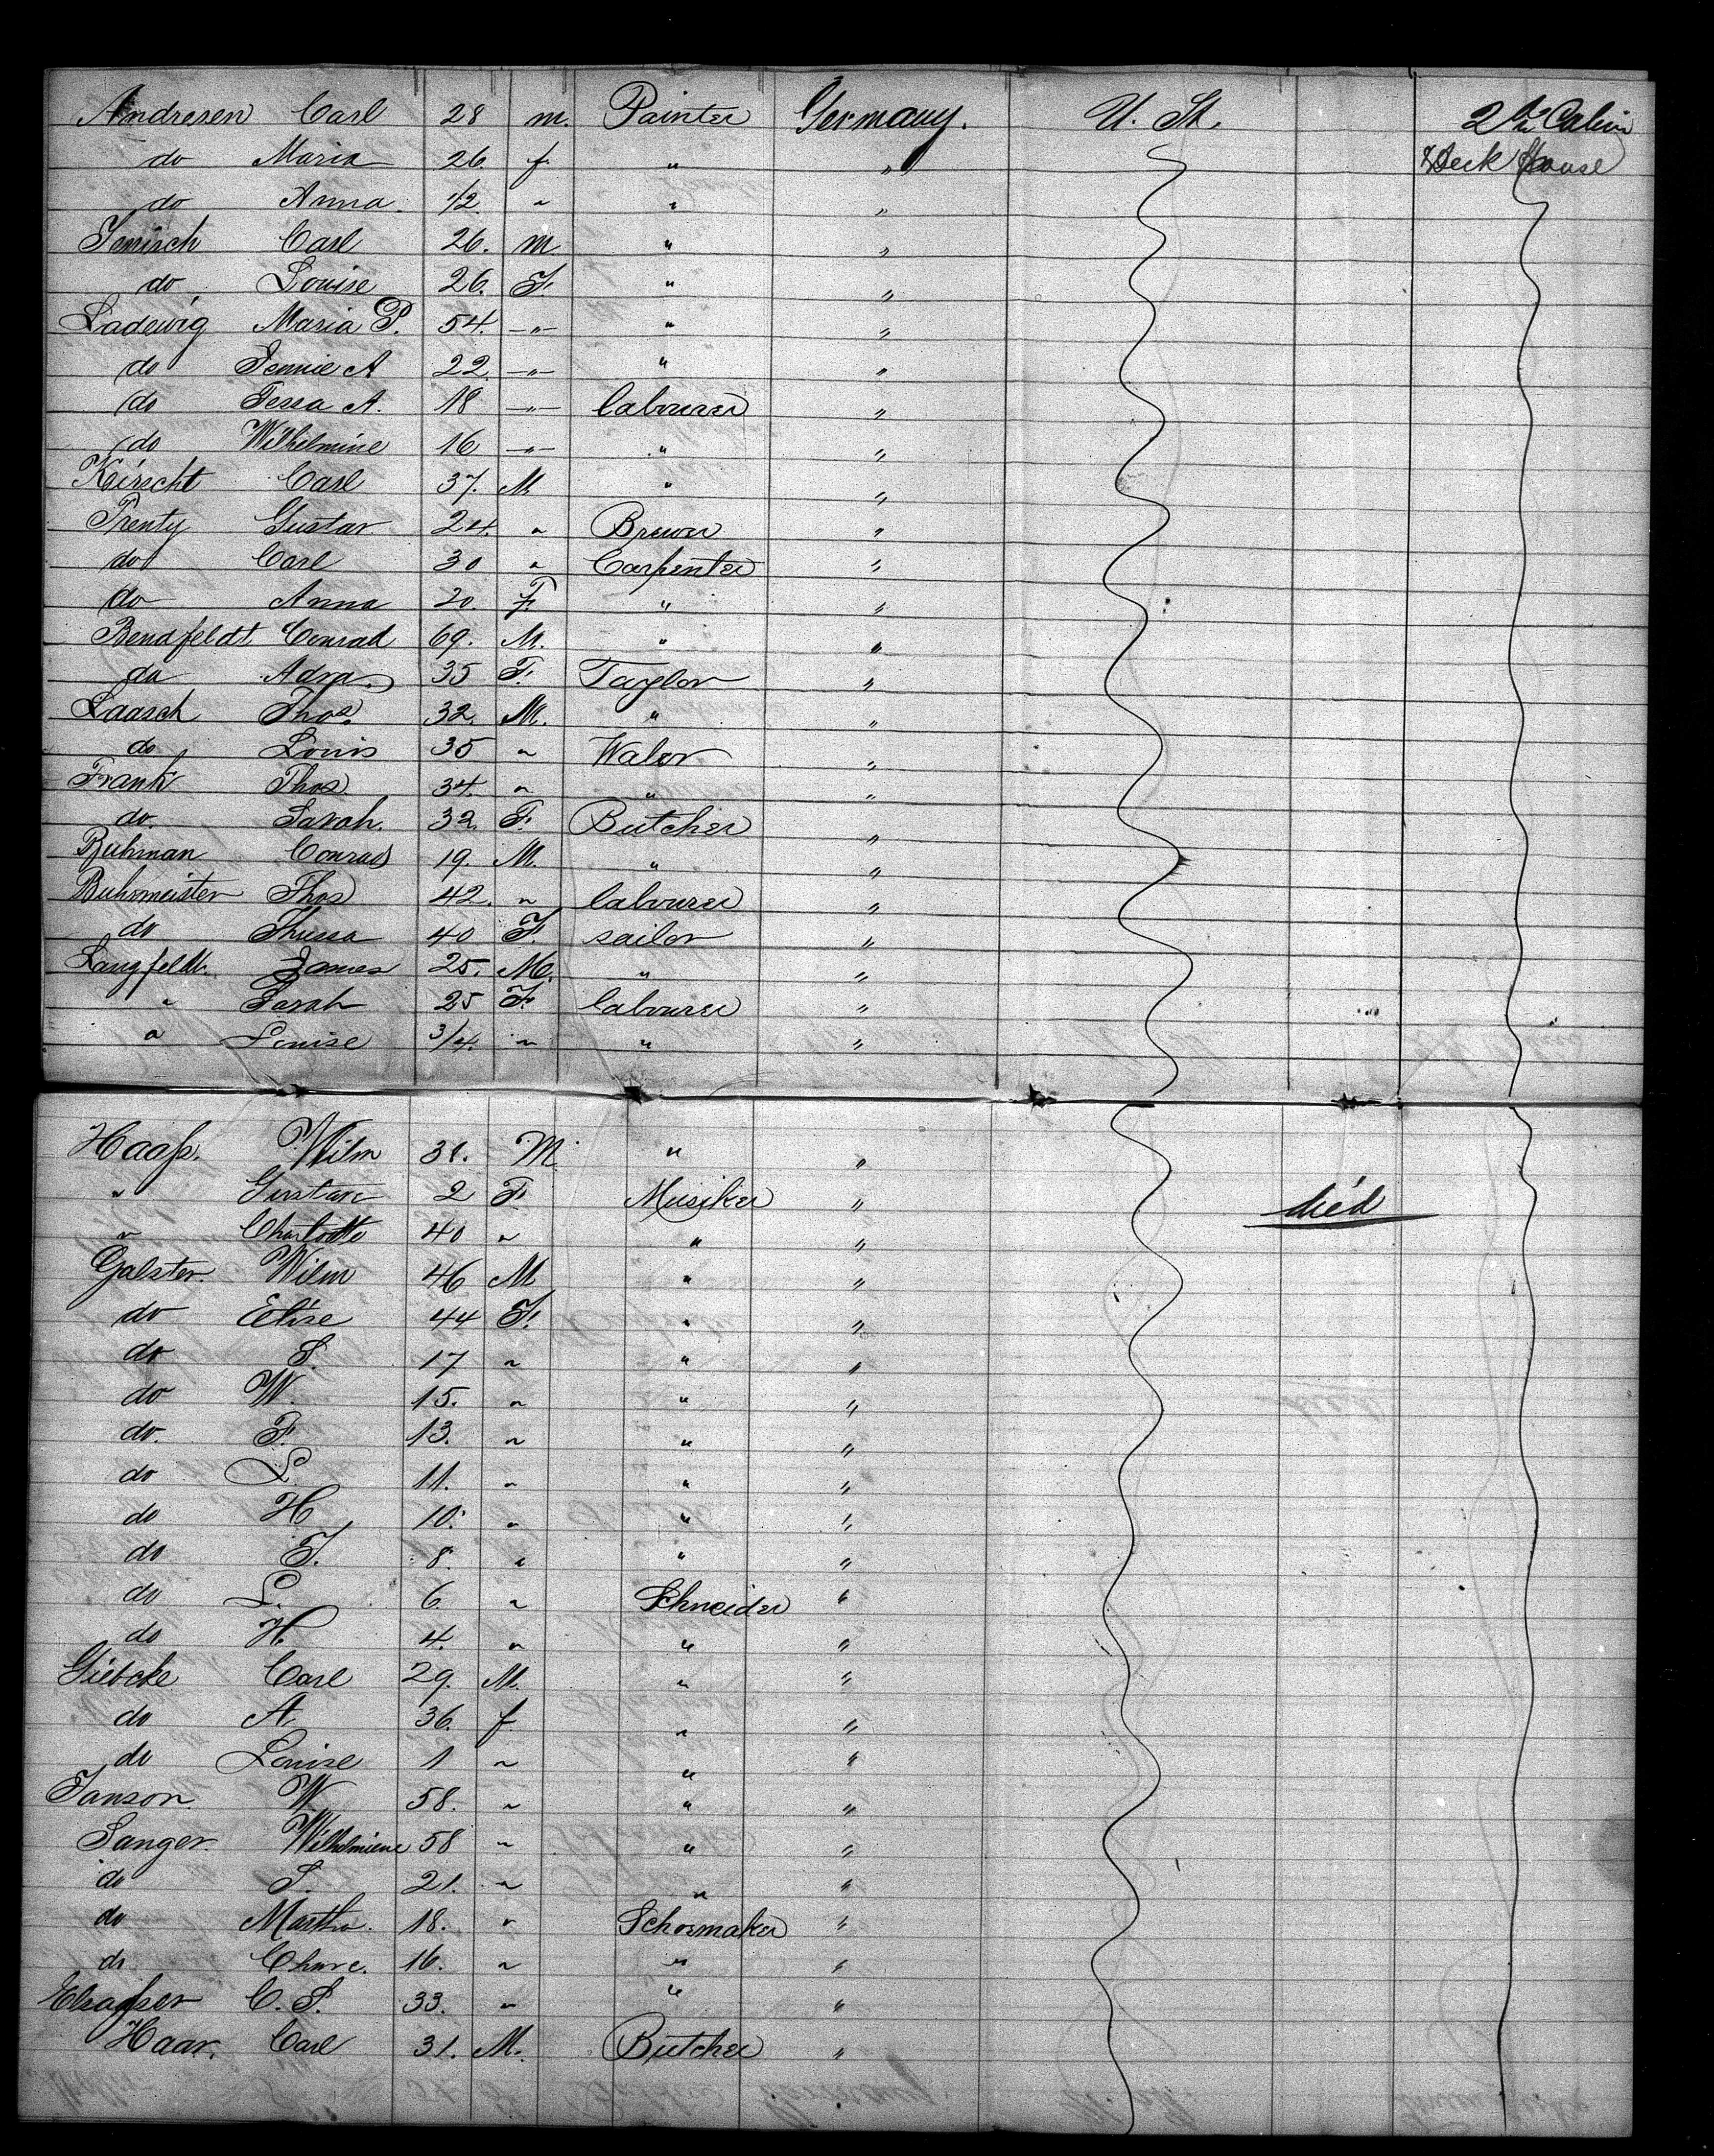 Andresen Carl 28 m. Painter Germany. U. St. 2te Cabin
do Maria 26 f. " " & Deck House
do Anna. 1/2 " " "
Jenisch Carl 26. m. " "
do Louise 26. F. " "
Ladewig Maria P. 54. -"- " "
do Jennie A 22. -"- " "
do Tessa A. 18 -"- labourer "
do Wilhelmine 16 -"- " "
Kirscht Carl 37. M " "
Prenty Gustav 24. " Brewer "
do Carl 30 " Carpenter "
do Anna 20. F. " "
Bendfeldt Conrad 69. M. " "
do Adra 35 F. Taylor "
Laasch Thos. 32. M. " "
do Louis 35 " Walor "
Frank Thos. 34. " " "
do. Sarah. 32. F. Butcher "
Ruhman Conrad 19. M. " "
Buhrmeister Thos 42. " labourer "
do Thressa 40 F. sailor "
Langfeldt. James 25. M. " "
" Sarah 25 F. labourer "
" Louise 3/4. " " "
Haaß. Wilm 31. M. " "
" Gustave 2 F. Musiker " died
" Charlotte 40 " " "
Galster. Wilm 46 M " "
do Elise 44 F. " "
do S. 17 " " "
do W. 15. " " "
do. F. 13. " " "
do L 11. " " "
do H 10. " " "
do T. 8. " " "
do L. 6. " Schneider "
do H. 4. " " "
Giebcke Carl 29. M. " "
do A. 36. f. " "
do Louise 1 " " "
Janson. W 58. " " "
Sanger. Wilhelmiene 58 " " "
do S. 21. " " "
do Martha. 18. " Schosmaker "
do 16. " " "
C. S. 33. " " "
Haar. Carl 31. M. Butcher "